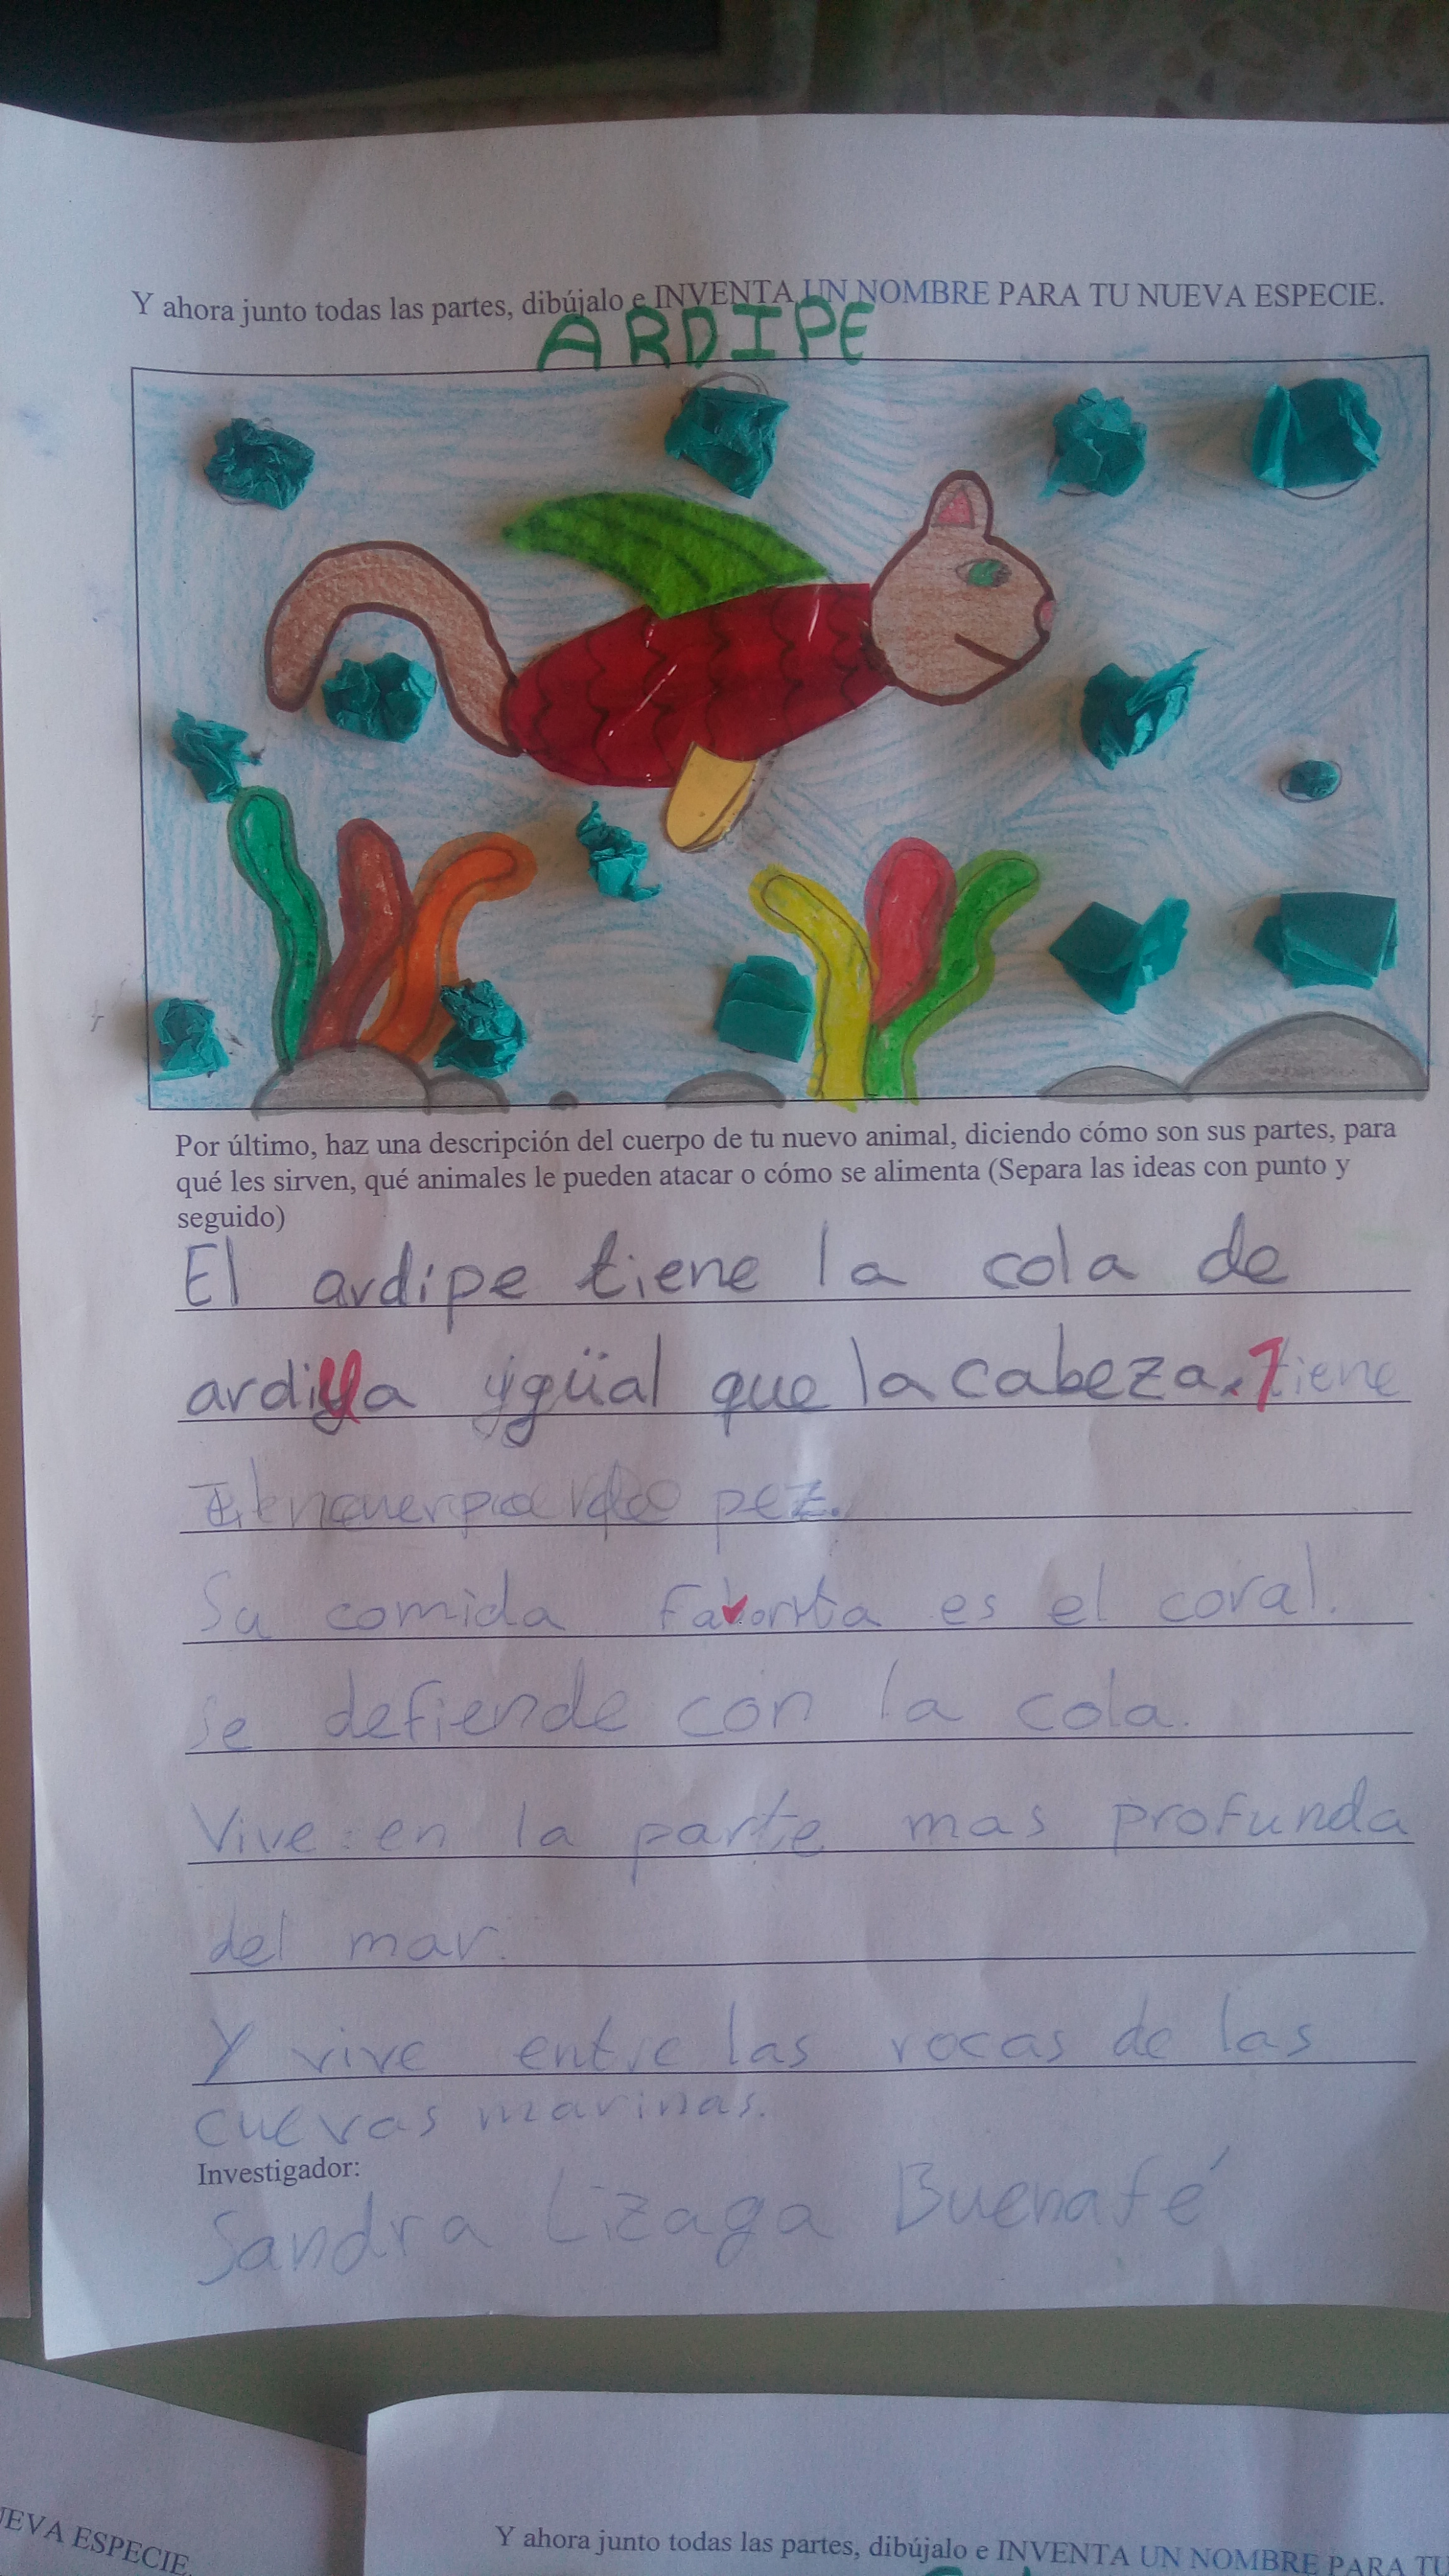 Y ahora junto todas las partes, dibújalo e INVENTA UN NOMBRE PARA TU NUEVA ESPECIE.
ARDIPE
Por último, haz una descripción del cuerpo de tu nuevo animal, diciendo cómo son sus partes, para
qué les sirven, qué animales le pueden atacar o cómo se alimenta (Separa las ideas con punto y
seguido)
El ardipe tiene la cola de
ardilla ygüal que la cabeza. Tiene
cuerpo de pez.
Su comida favorita es el coral.
se defiende con la cola.
Vive en la parte mas profunda
del mar.
Y vive entre las rocas de las
cuevas marinas.
Investigador:
Sandra Lizaga Buenafé
UEVA ESPECIE.
Y ahora junto todas las partes, dibújalo e INVENTA UN NOMBRE PARA TU